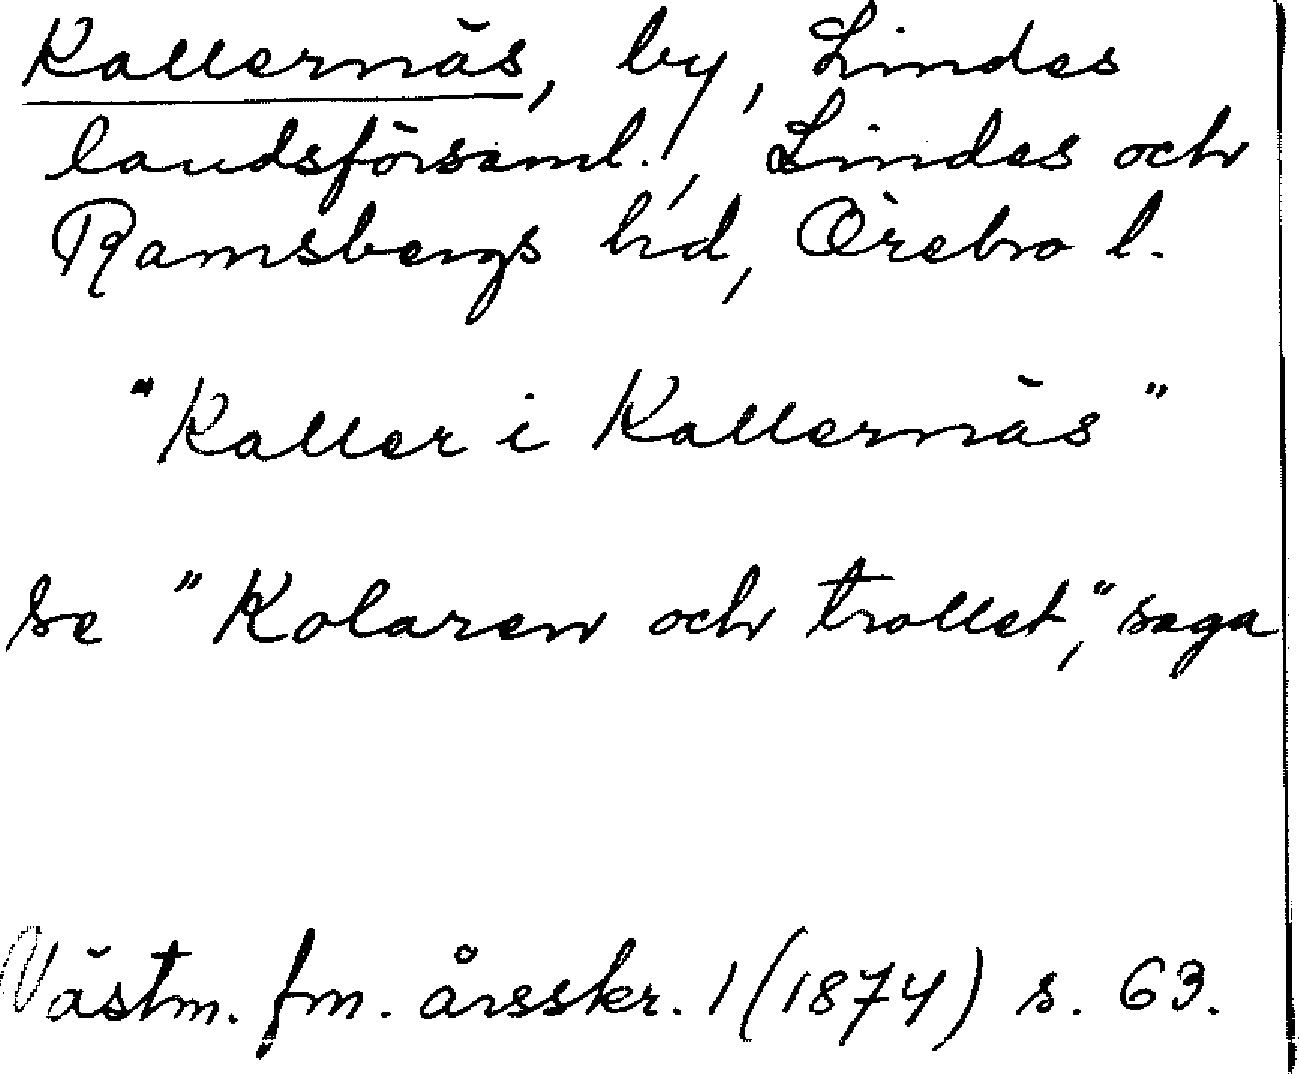 Kallernäs, by, Lindes
landsförsaml., Lindes och
Ramsbergs hd, Örebro l.
"Kaller i Kallernäs"
se "Kolaren och trollet," saga
Västm. fm. årsskr. 1 (1874) s. 63.